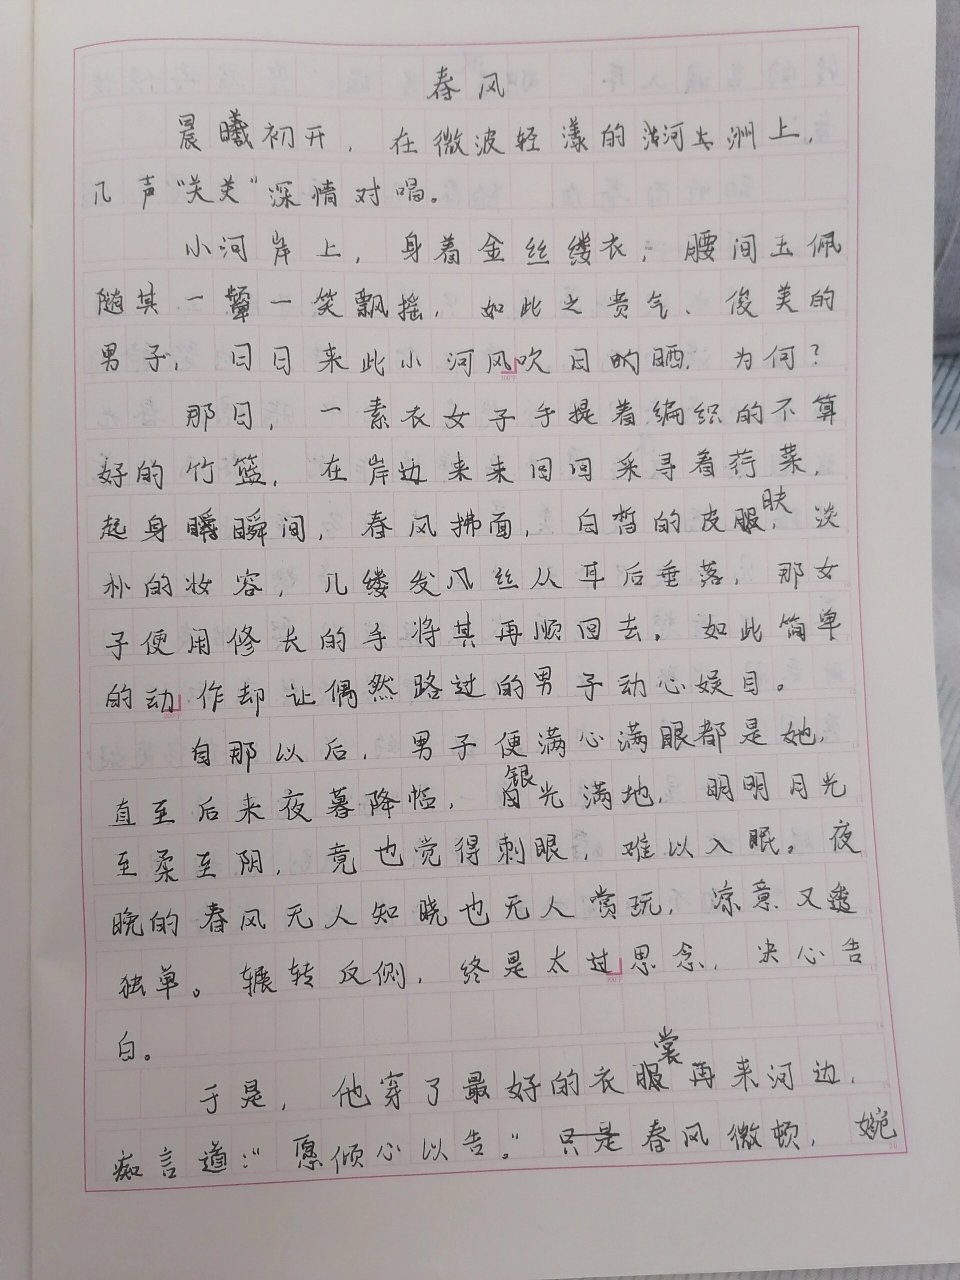 春风
晨曦初开，在微波轻漾的河洲上，
几声“关关”深情对唱。
小河岸上，身着金丝缕衣；腰间玉佩
随其一颦一笑飘摇，如此之贵气、俊美的
男子，日日来此小河风吹日晒，为何？
那日，一素衣女子手提着编织的不算
好的竹篮，在岸边来来回回采寻着荇菜，
起身瞬间，春风拂面，白皙的皮肤，淡
朴的妆容，几缕发风丝从耳后垂落，那女
子便用修长的手将其再顺回去。如此简单
的动作却让偶然路过的男子动心娱目。
自那以后，男子便满心满眼都是她，
直至后来夜暮降临，银光满地，明明月光
至柔至阴，竟也觉得刺眼，难以入眠。夜
晚的春风无人知晓也无人赏玩，凉意又透
独单。辗转反侧，终是太过思念，决心告
白。
于是，他穿了最好的衣裳再来河边，
痴言道：“愿倾心以告。”春风微顿，婉